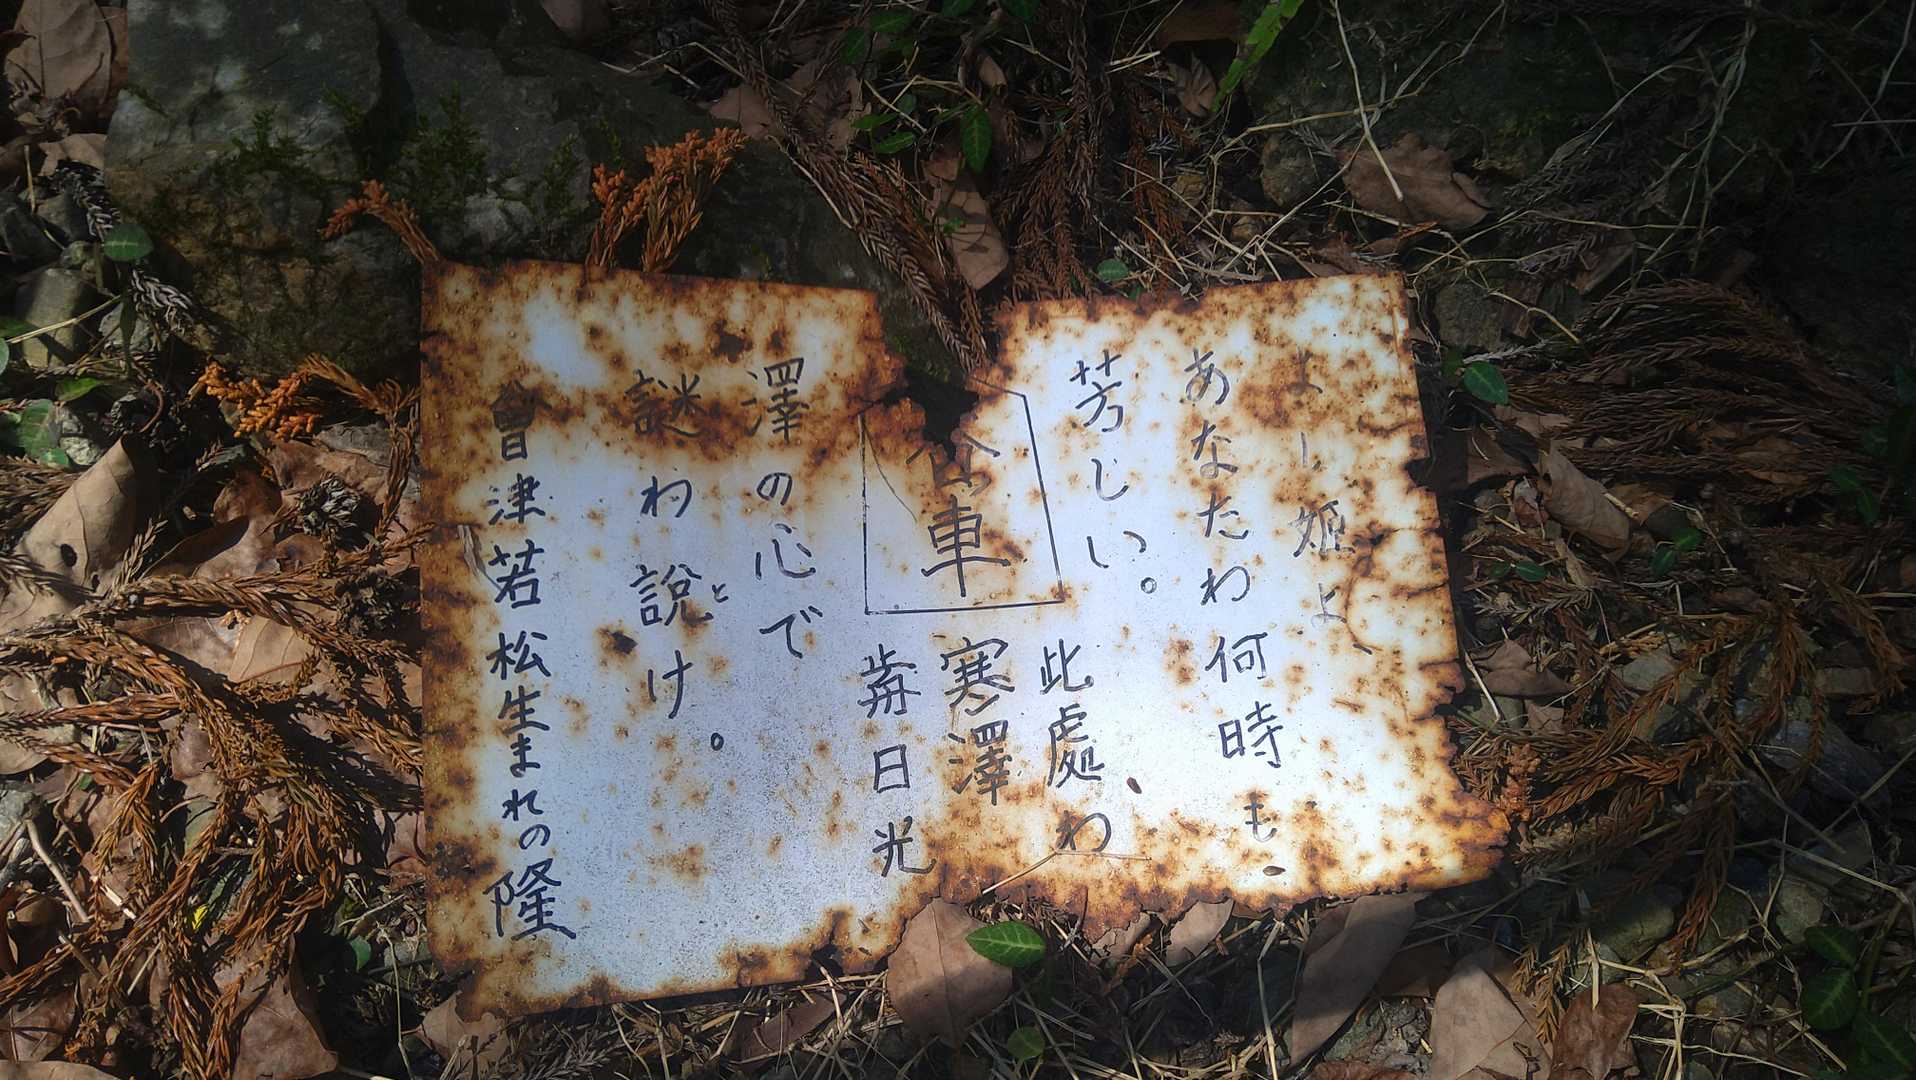 よし姫よ、
あなたわ何時も、
芳しい。此處わ
車
寒澤
歬日光
澤の心で
謎わ説け。
と
會津若松生まれの隆